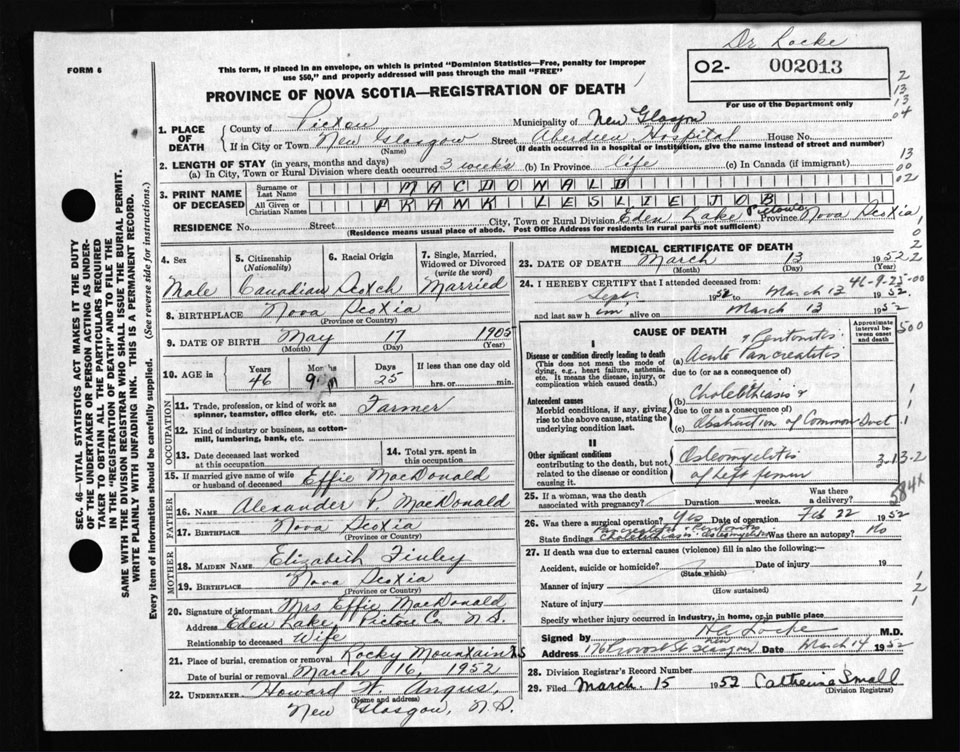 Dr Locke
FORM 6
This form, if placed in an envelope, on which is printed "Dominion Statistics—Free, penalty for improper
use $50," and properly addressed will pass through the mail "FREE"
O2- 002013
For use of the Department only
2
13
13
04
PROVINCE OF NOVA SCOTIA—REGISTRATION OF DEATH
1. PLACE OF DEATH
County of Pictou Municipality of New Glasgow
If in City or Town New Glasgow (Name) Street Aberdeen Hospital House No.
(If death occurred in a hospital or institution, give the name instead of street and number)
2. LENGTH OF STAY (in years, months and days)
(a) In City, Town or Rural Division where death occurred 3 weeks (b) In Province life (c) In Canada (if immigrant)
13
00
02
3. PRINT NAME OF DECEASED
Surname or Last Name MACDONALD
All Given or Christian Names FRANK LESLIE JOB
RESIDENCE No. Street City, Town or Rural Division Eden Lake Pictou Province Nova Scotia
(Residence means usual place of abode. Post Office Address for residents in rural parts not sufficient)
SEC. 46—VITAL STATISTICS ACT MAKES IT THE DUTY
OF THE UNDERTAKER OR PERSON ACTING AS UNDER-
TAKER TO OBTAIN ALL THE PARTICULARS REQUIRED
IN THE "REGISTRATION OF DEATH" AND TO FILE THE
SAME WITH THE DIVISION REGISTRAR WHO SHALL ISSUE THE BURIAL PERMIT.
WRITE PLAINLY WITH UNFADING INK. THIS IS A PERMANENT RECORD.
Every item of information should be carefully supplied. (See reverse side for instructions.)
4. Sex
Male
5. Citizenship
(Nationality)
Canadian
6. Racial Origin
Scotch
7. Single, Married,
Widowed or Divorced
(write the word)
Married
8. BIRTHPLACE Nova Scotia
(Province or Country)
9. DATE OF BIRTH May 17 1905
(Month) (Day) (Year)
10. AGE in
Years Months Days If less than one day old
46 9 25 hrs. or min.
OCCUPATION
11. Trade, profession, or kind of work as
spinner, teamster, office clerk, etc. Farmer
12. Kind of industry or business, as cotton-
mill, lumbering, bank, etc.
13. Date deceased last worked
at this occupation
14. Total yrs. spent in
this occupation
15. If married give name of wife
or husband of deceased Effie MacDonald
FATHER
16. Name Alexander P. MacDonald
17. BIRTHPLACE Nova Scotia
MOTHER
18. MAIDEN NAME Elizabeth Finley
19. BIRTHPLACE Nova Scotia
(Province or Country)
20. Signature of informant Mrs Effie MacDonald
Address Eden Lake, Pictou Co N.S.
Relationship to deceased Wife
21. Place of burial, cremation or removal Rocky Mountain N.S
Date of burial or removal March 16, 1952
22. UNDERTAKER Howard W. Angus,
(Name and address)
New Glasgow, N.S.
MEDICAL CERTIFICATE OF DEATH
23. DATE OF DEATH March 13 1952
(Month) (Day) (Year)
24. I HEREBY CERTIFY that I attended deceased from: 46-9-25-00
Sept. 1951 to March 13 1952.
and last saw him alive on March 13 1952
CAUSE OF DEATH
Approximate
interval be-
tween onset
and death
I
Disease or condition directly leading to death
(This does not mean the mode of
dying, e.g., heart failure, asthenia,
etc. It means the disease, injury, or
complication which caused death.)
& Peritonitis
(a) Acute Pancreatitis
due to (or as a consequence of)
Antecedent causes
Morbid conditions, if any, giving
rise to the above cause, stating the
underlying condition last.
(b) Cholelithiasis &
due to (or as a consequence of)
(c) Obstruction of Common Duct
II
Other significant conditions
contributing to the death, but not
related to the disease or condition
causing it.
Osteomyelitis
of Left femur
3-13-2
584x
25. If a woman, was the death
associated with pregnancy? Duration weeks. Was there
a delivery?
26. Was there a surgical operation? Yes Date of operation Feb 22 1952
State findings Pancreatitis - Peritonitis
Cholelithiasis - Osteomyelitis Was there an autopsy? No
27. If death was due to external causes (violence) fill in also the following:—
Accident, suicide or homicide? (State which) Date of injury 19
Manner of injury
(How sustained)
Nature of injury
Specify whether injury occurred in industry, in home, or in public place
Signed by H A Locke M.D.
Address 176 Provost St New Glasgow Date March 14 1952
28. Division Registrar's Record Number
29. Filed March. 15 1952 Catherine Small
(Division Registrar)